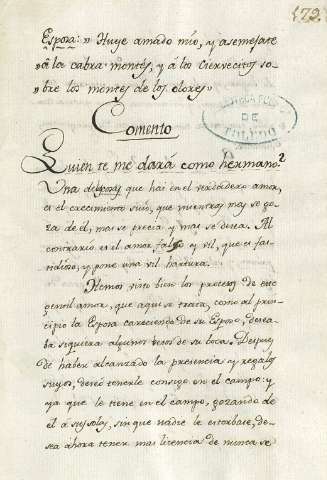 179.
Esposa: „ Huye amado mio, y asemejate
„ á la cabra montés, y á los ciervecitos so-
„ bre los montes de los olores „
DE
TOLEDO
Comento
Quién te me dará como hermano?
Una de las que hai en el verdadero amor,
es el crecimiento suio, que mientras mas se go-
za de él, mas se precia y mas se desea. Al
contrario es el amor falso y vil, que es fas-
tidioso, y pone una vil hartura.
Hemos visto bien los procesos de este
gentil amor, que aqui se trata, como al prin-
cipio la Esposa careciendo de su Esposo, desea-
ba siquiera algunos besos de su boca. Despues
de haber alcanzado la presencia y regalos
suyos, deseó tenerle consigo en el campo: y
ya que le tiene en el campo, gozando de
él á sus solas, sin que nadie le estorbase, de-
sea ahora tener mas licencia de nunca se